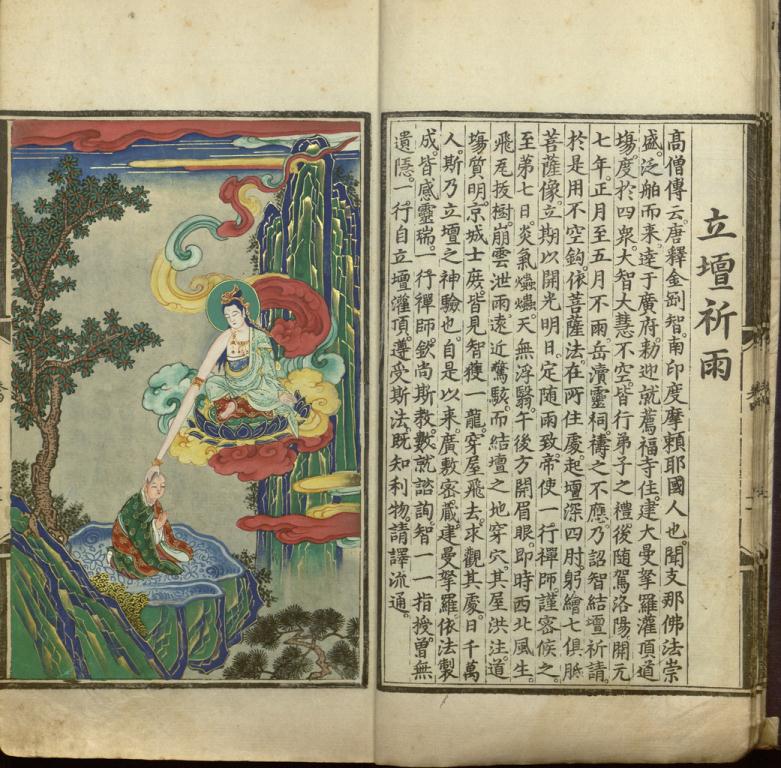 立壇祈雨
高僧傳云。唐釋金剛智。南印度摩賴耶國人也。聞支那佛法崇
盛。泛舶而來。達于廣府。勅迎就薦福寺住。建大曼拏羅灌頂道
塲。度於四衆。大智大慧不空。皆行弟子之禮。後隨駕洛陽。開元
七年。正月至五月不雨。岳瀆靈祠。禱之不應。乃詔智結壇祈請。
於是用不空鉤。依菩薩法。在所住處。起壇深四肘。躬繪七俱胝
菩薩像。立期以開光明日。定隨雨致。帝使一行禪師。謹密候之。
至第七日。炎氣爞爞。天無浮翳。午後方開眉眼。即時西北風生。
飛瓦拔樹。崩雲泄雨。遠近驚駭。而結壇之地。穿穴其屋。洪注道
塲。質明。京城士庻。皆見智獲一龍。穿屋飛去。求觀其處。日千萬
人。斯乃立壇之神驗也。自是以來。廣敷密藏。建曼拏羅。依法製
成。皆感靈瑞。一行禪師。欽尚斯教。數就諮詢。智一一指授。曽無
遺隱。一行自立壇灌頂。遵受斯法。既知利物。請譯流通。